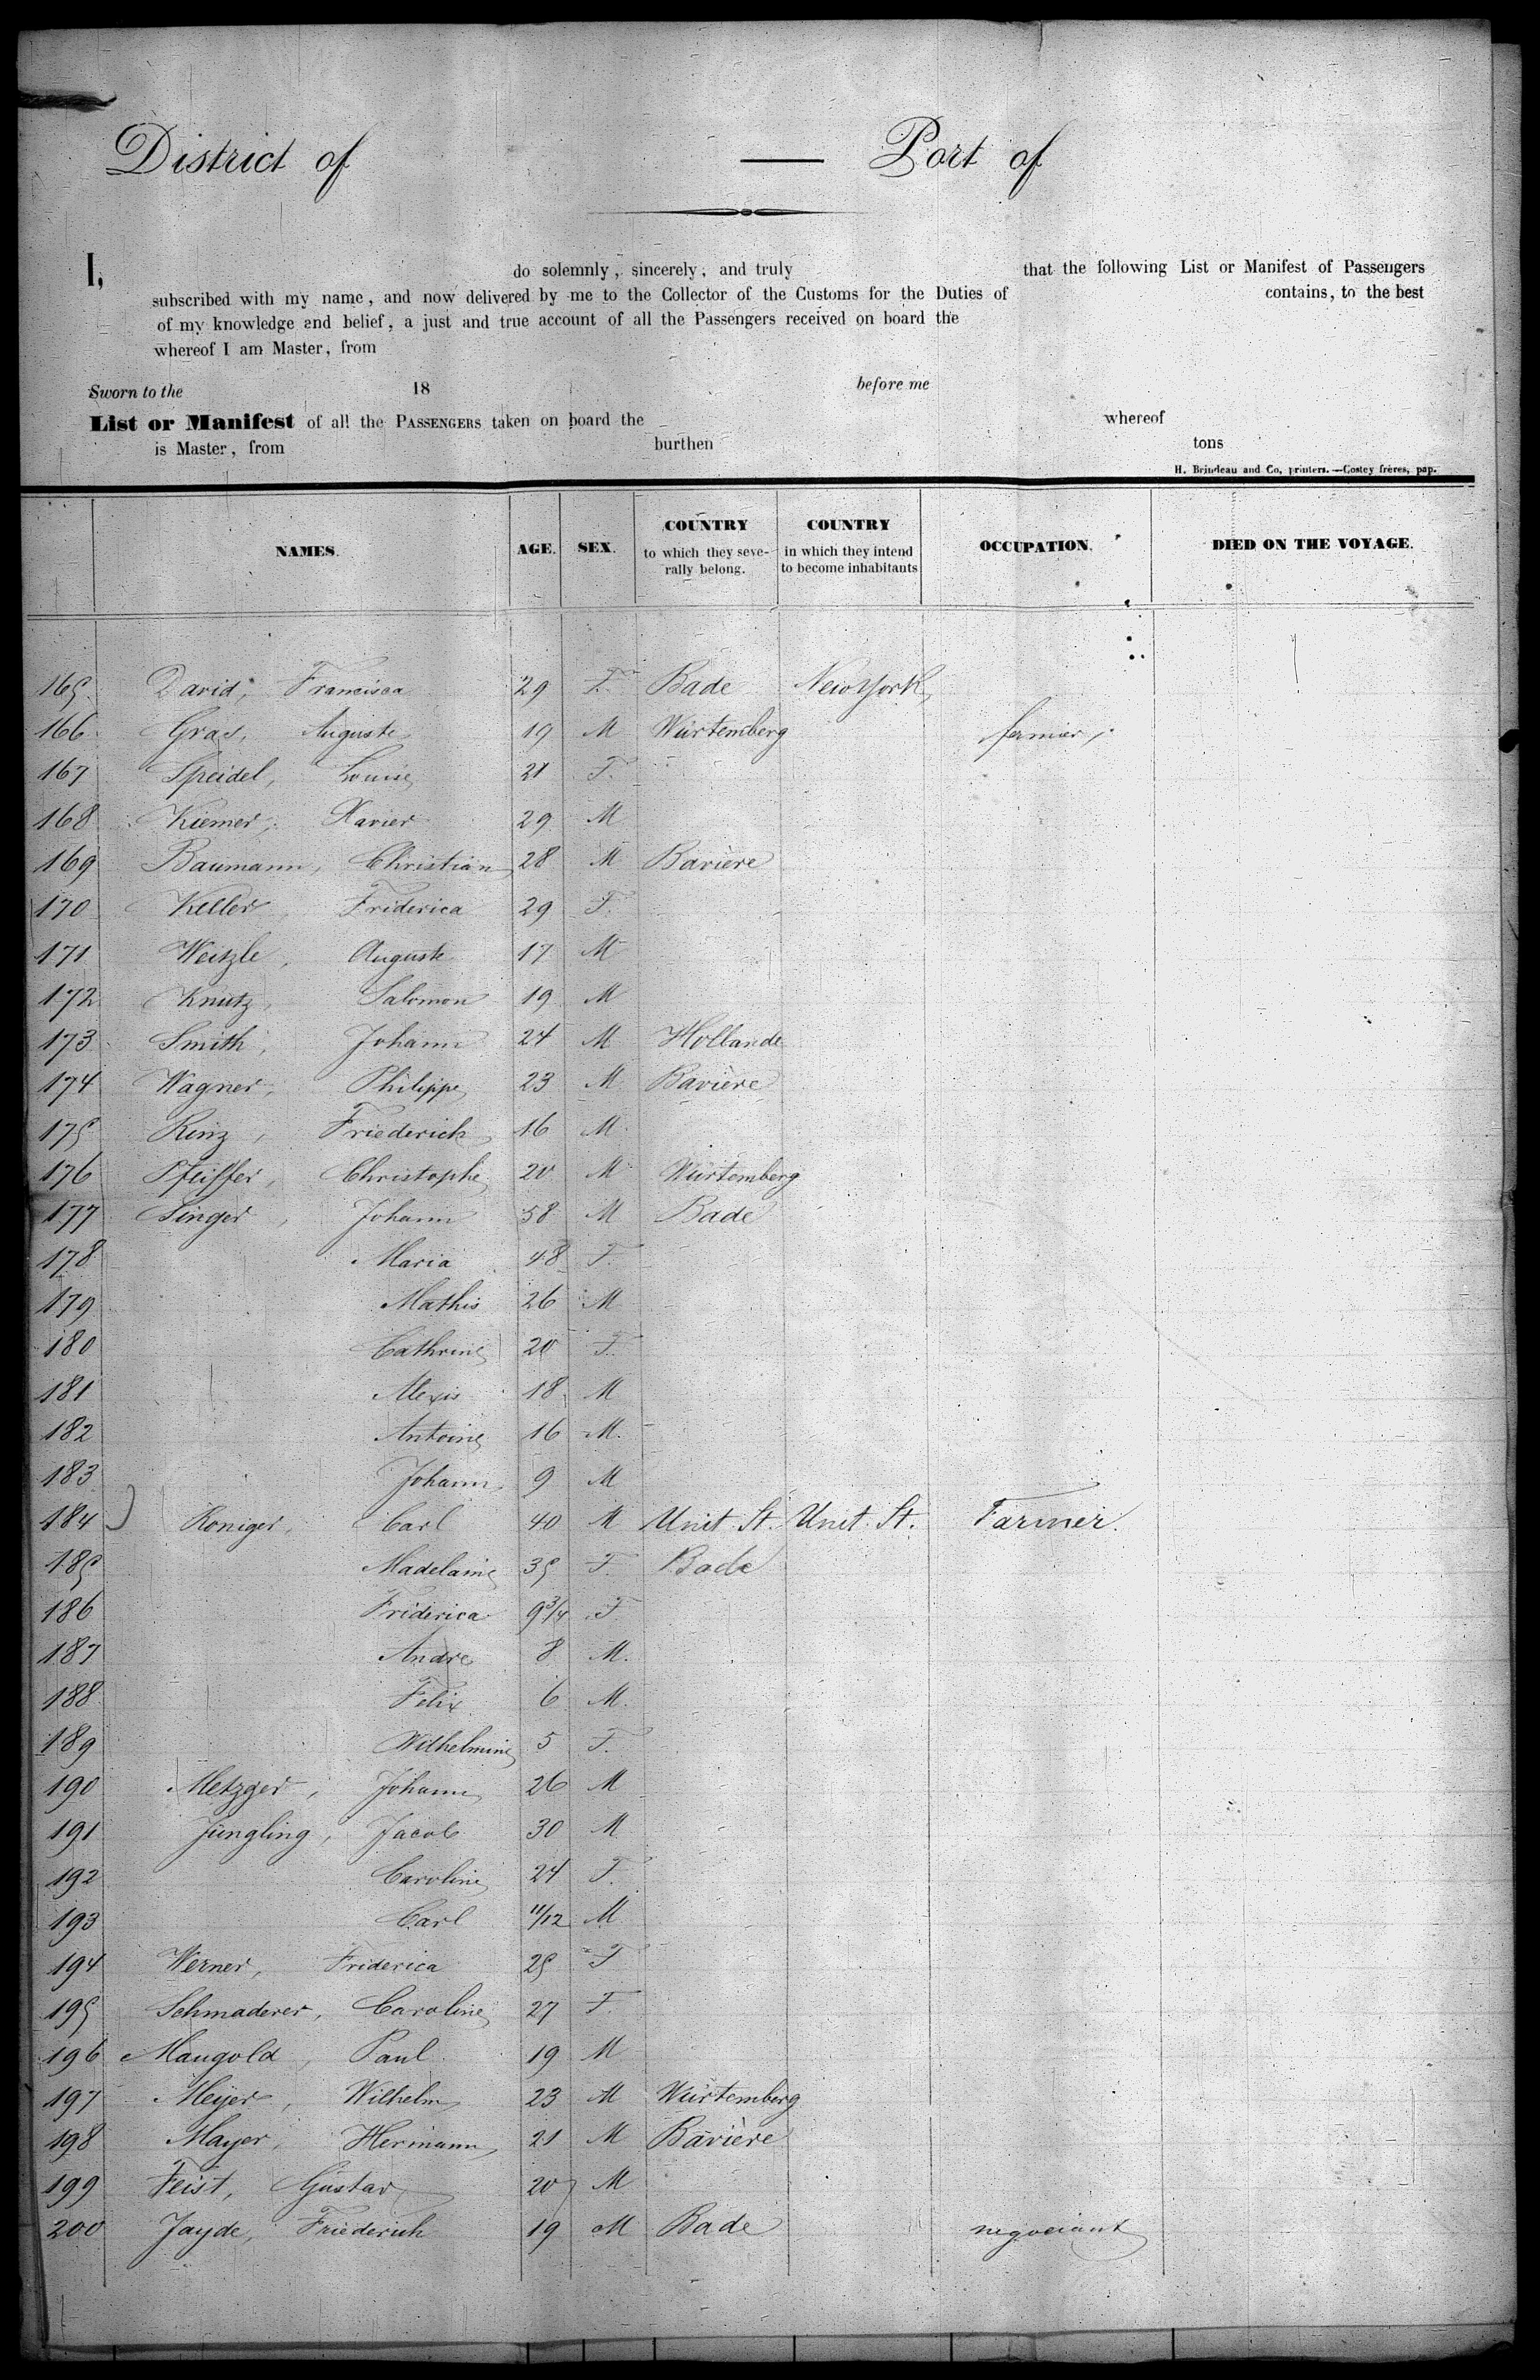 District of — Port of
I, do solemnly, sincerely, and truly that the following List or Manifest of Passengers
subscribed with my name, and now delivered by me to the Collector of the Customs for the Duties of contains, to the best
of my knowledge and belief, a just and true account of all the Passengers received on board the
whereof I am Master, from
Sworn to the 18 before me
List or Manifest of all the PASSENGERS taken on board the whereof
is Master, from burthen tons
H. Brindeau and Co, printers.—Costey frères, pap.
NAMES. AGE. SEX. COUNTRY to which they severally belong. COUNTRY in which they intend to become inhabitants OCCUPATION. DIED ON THE VOYAGE.
165 David, Francisca 29 F. Bade New York
166 Gras, Auguste 19 M Würtemberg farmer
167 Speidel, Louise 21 F.
168 Kiemer, Xavier 29 M
169 Baumann, Christian 28 M Bavière
170 Keller, Friderica 29 F.
171 Weitzle, Auguste 17 M
172 Knutz, Salomon 19 M
173 Smith, Johann 24 M Hollande
174 Wagner, Philippe 23 M Bavière
175 Rinz, Friederich 16 M
176 Pfeiffer, Christophe 20 M Würtemberg
177 Singer, Johann 58 M Bade
178 Maria 48 F.
179 Mathis 26 M
180 Cathrine 20 F.
181 Alexis 18 M
182 Antoine 16 M.
183 Johann 9 M
184 Roniger, Carl 40 M Unit. St. Unit. St. Farmer.
185 Madelaine 35 F. Bade
186 Friderica 9 3/4 F
187 Andre 8 M.
188 Felix 6 M.
189 Wilhelmine 5 F.
190 Metzger, Johann 26 M
191 Jüngling, Jacob 30 M
192 Caroline 24 F.
193 Carl 11/12 M
194 Werner, Friderica 25 F
195 Schmaderer, Caroline 27 F.
196 Mangold, Paul 19 M
197 Meyer, Wilhelm 23 M Würtemberg
198 Mayer, Hermann 21 M Bavière
199 Feist, Gustav 20 M
200 Jayde, Friederich 19 M Bade negociant